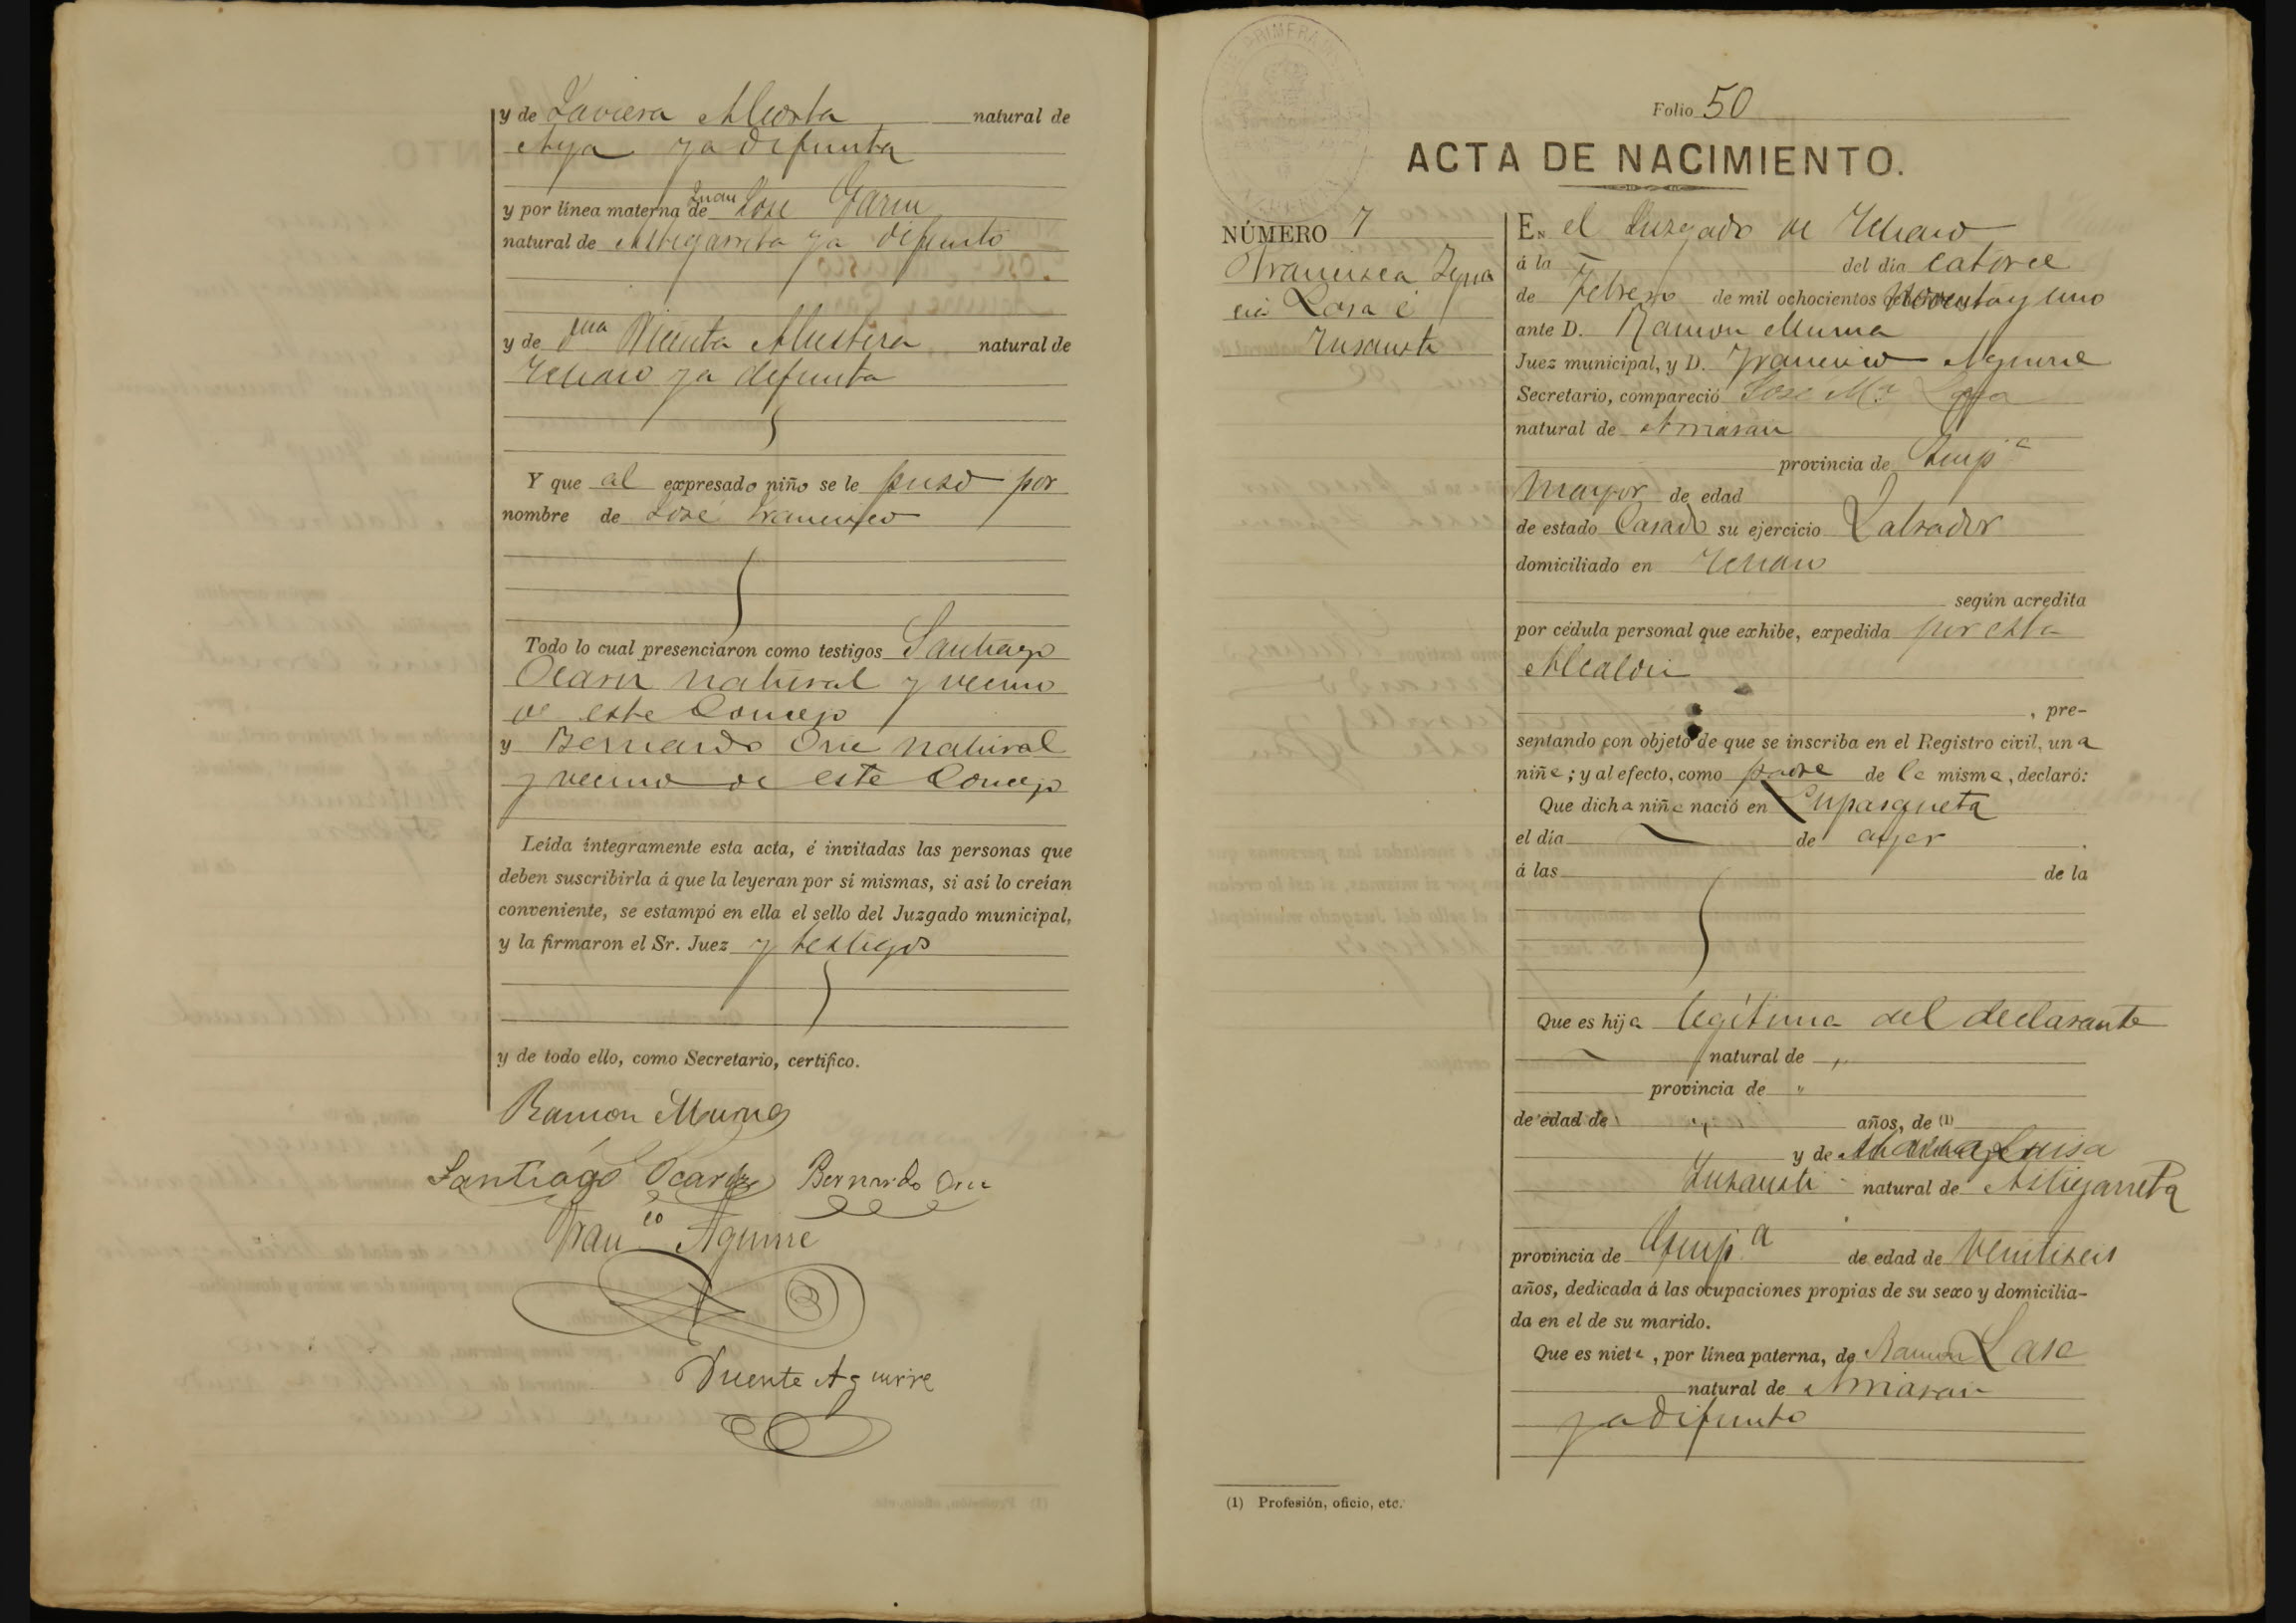 y de Javiera Alcorta natural de
Aya ya difunta
y por línea materna de Juan José Garin
natural de Astigarreta ya difunto
y de Dña Vicenta natural de
Ichaso ya difunta
Y que al expresado niño se le puso por
nombre de José Francisco
Todo lo cual presenciaron como testigos Santiago
Ocariz natural y vecino
de este Concejo
y Bernardo Oria natural
y vecino de este Concejo
Leída íntegramente esta acta, é invitadas las personas que
deben suscribirla á que la leyeran por sí mismas, si así lo creían
conveniente, se estampó en ella el sello del Juzgado municipal,
y la firmaron el Sr. Juez y testigos
y de todo ello, como Secretario, certifico.
Ramon Murua
Santiago Ocariz Bernardo Oria
Fran.co Aguirre
Vicente Aguirre
Folio 50
ACTA DE NACIMIENTO.
NÚMERO 7
Francisca Igna
cia Lasa é
Insausti
EN el Juzgado de Ichaso
á la del día catorce
de Febrero de mil ochocientos noventa y uno
ante D. Ramon Murua
Juez municipal, y D. Francisco Aguirre
Secretario, compareció José Ma. Lasa
natural de Arriaran
provincia de Guip.a
mayor de edad
de estado Casado su ejercicio Labrador
domiciliado en Ichaso
según acredita
por cédula personal que exhibe, expedida por esta
Alcaldia
, pre-
sentando con objeto de que se inscriba en el Registro civil, una
niña; y al efecto, como padre de la misma, declaró:
Que dicha niña nació en
el día de ayer
á las de la
Que es hija legítima del declarante
natural de "
provincia de "
de edad de " años, de (1)
y de Maria Luisa
Insausti natural de Astigarreta
provincia de Guip.a de edad de veintiseis
años, dedicada á las ocupaciones propias de su sexo y domicilia-
da en el de su marido.
Que es nieta, por línea paterna, de Ramon Lasa
natural de Arriaran
ya difunto
(1) Profesión, oficio, etc.